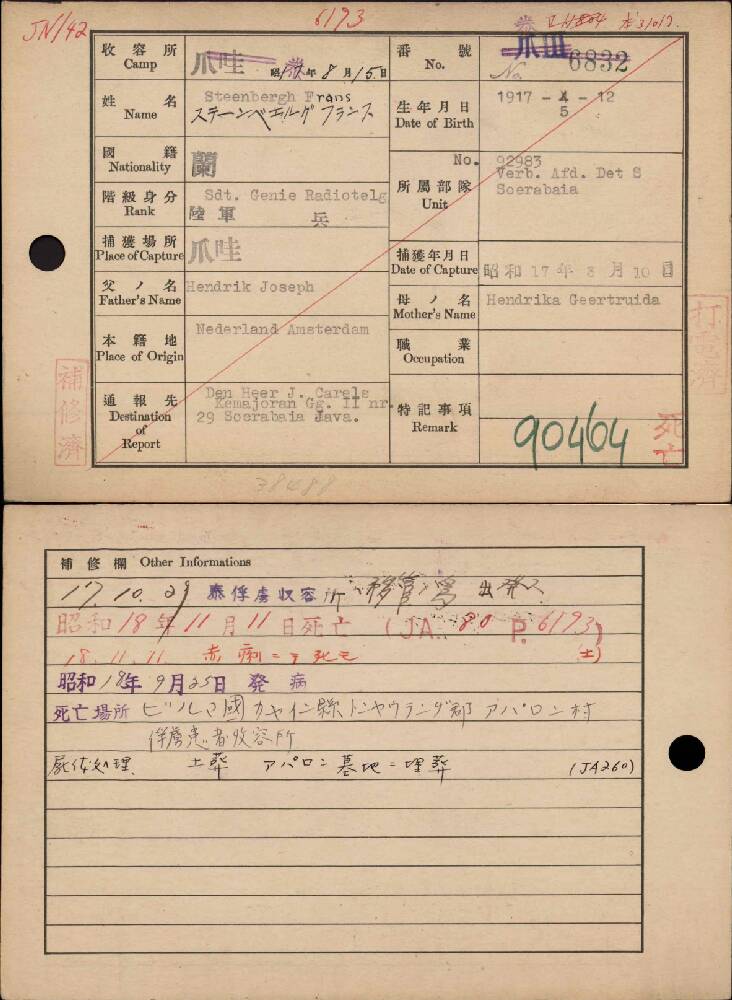 JN/42
6193
泰
収容所 Camp
爪哇 泰
昭 17 年 8 月 15 日
番號 No.
爪 III
No. 6832
姓名 Name
Steenbergh Frans
ステーンベエルグ フランス
生年月日 Date of Birth
1917 - 4 - 12
5
國籍 Nationality
蘭
所屬部隊 Unit
No. 92983
Verb. Afd. Det S
Soerabaia
階級身分 Rank
Sdt. Genie Radiotelg
陸軍 兵
捕獲場所 Place of Capture
爪哇
捕獲年月日 Date of Capture
昭和 17 年 3 月 10 日
父ノ名 Father's Name
Hendrik Joseph
母ノ名 Mother's Name
Hendrika Geertruida
本籍地 Place of Origin
Nederland Amsterdam
職業 Occupation
通報先 Destination of Report
Den Heer J. Carels
Kemajoran Gg. II nr.
29 Soerabaia Java.
特記事項 Remark
90464
死亡
補修濟
打電濟
38488
補修欄 Other Informations
17.10.29 泰俘虜収容所ニ移管ノ為出発ス
昭和 18 年 11 月 11 日死亡 (JA. 80 P. 6193)
18.11.11 赤痢ニテ死亡 (土)
昭和 18年 9月25日 発病
死亡場所 ビルマ國カヤイン縣トンヤウランダ郡アパロン村
俘虜患者收容所
屍体処理 土葬 アパロン墓地ニ埋葬 (JA260)